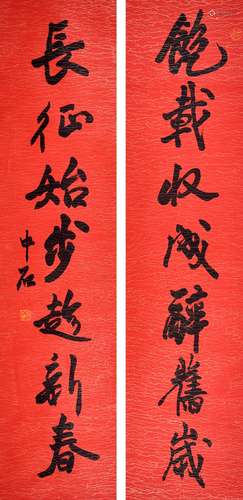 飽載收成辭舊歲
長征始步趁新春
中石